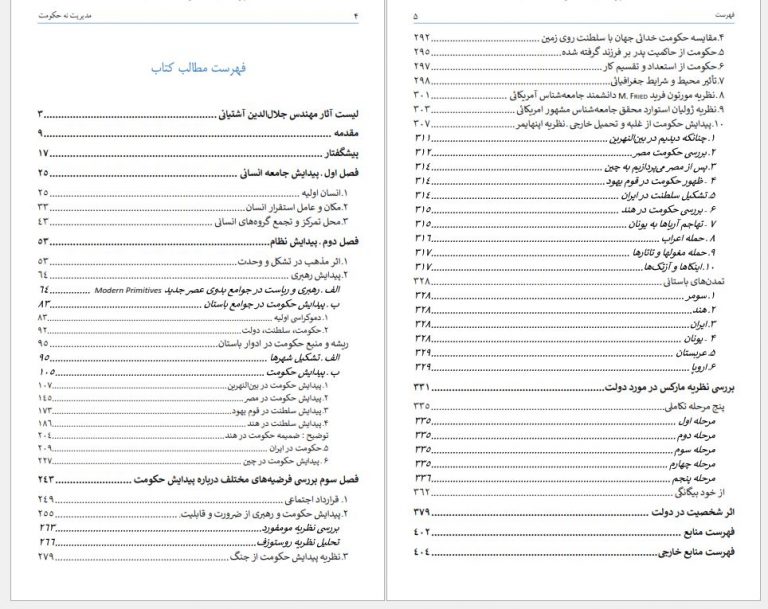 ۴ مدیریت نه حکومت
فهرست مطالب کتاب
لیست آثار مهندس جلال‌الدین آشتیانی ۳
مقدمه ۹
پیشگفتار ۱۷
فصل اول . پیدایش جامعه انسانی ۲۵
۱.انسان اولیه ۲۵
۲.مکان و عامل استقرار انسان ۳۳
۳.محل تمرکز و تجمع گروه‌های انسانی ۴۳
فصل دوم . پیدایش نظام ۵۳
۱.اثر مذهب در تشکل و وحدت ۵۳
۲.پیدایش رهبری ۶۴
الف . رهبری و ریاست در جوامع بدوی عصر جدید Modern Primitives ۶۴
ب . پیدایش حکومت در جوامع باستان ۸۳
۱.دموکراسی اولیه ۸۳
۲.حکومت، سلطنت، دولت ۹۲
ریشه و منبع حکومت در ادوار باستان ۹۵
الف . تشکیل شهرها ۹۵
ب . پیدایش حکومت ۱۰۵
۱. پیدایش حکومت در بین‌النهرین ۱۰۷
۲. پیدایش حکومت در مصر ۱۴۵
۳. پیدایش سلطنت در قوم یهود ۱۷۳
۴. پیدایش سلطنت در هند ۱۸۶
توضیح : ضمیمه حکومت در هند ۲۰۴
۵.حکومت در ایران ۲۰۹
۶. پیدایش حکومت در چین ۲۲۷
فصل سوم بررسی فرضیه‌های مختلف درباره پیدایش حکومت ۲۴۳
۱. قرارداد اجتماعی ۲۴۹
۲.پیدایش حکومت و رهبری از ضرورت و قابلیت ۲۵۵
بررسی نظریه مومفورد ۲۶۳
تحلیل نظریه روستوزف ۲۶۶
۳.نظریه پیدایش حکومت از جنگ ۲۷۹
فهرست ۵
۴.مقایسه حکومت خدائی جهان با سلطنت روی زمین ۲۹۲
۵.حکومت از حاکمیت پدر بر فرزند گرفته شده ۲۹۵
۶.حکومت از استعداد و تقسیم کار ۲۹۷
۷.تأثیر محیط و شرایط جغرافیائی ۲۹۸
۸.نظریه مورتون فرید M. FRIED دانشمند جامعه‌شناس آمریکائی ۳۰۱
۹.نظریه ژولیان استوارد محقق جامعه‌شناس مشهور امریکائی ۳۰۳
۱۰.پیدایش حکومت از غلبه و تحمیل خارجی . نظریه اپنهایمر ۳۰۷
۱.چنانکه دیدیم در بین‌النهرین ۳۱۱
۲.بررسی حکومت مصر ۳۱۲
۳.پس از مصر می‌پردازیم به چین ۳۱۴
۴ . ظهور حکومت در قوم یهود ۳۱۴
۵.تشکیل سلطنت در ایران ۳۱۴
۶ . بررسی حکومت در هند ۳۱۵
۷ . تهاجم آریاها به یونان ۳۱۵
۸ . حمله اعراب ۳۱۶
۹.حمله مغولها و تاتارها ۳۱۷
۱۰.اینکاها و آزتک‌ها ۳۱۷
تمدن‌های باستانی ۳۲۸
۱.سومر ۳۲۸
۲.هند ۳۲۸
۳.ایران ۳۲۸
۴ . یونان ۳۲۸
۵.عربستان ۳۲۹
۶.اروپا ۳۲۹
بررسی نظریه مارکس در مورد دولت ۳۳۱
پنج مرحله تکاملی ۳۳۵
مرحله اول ۳۳۵
مرحله دوم ۳۳۵
مرحله سوم ۳۳۵
مرحله چهارم ۳۳۵
مرحله پنجم ۳۳۶
از خود بیگانگی ۳۶۲
اثر شخصیت در دولت ۳۷۹
فهرست منابع ۴۰۲
فهرست منابع خارجی ۴۰۴